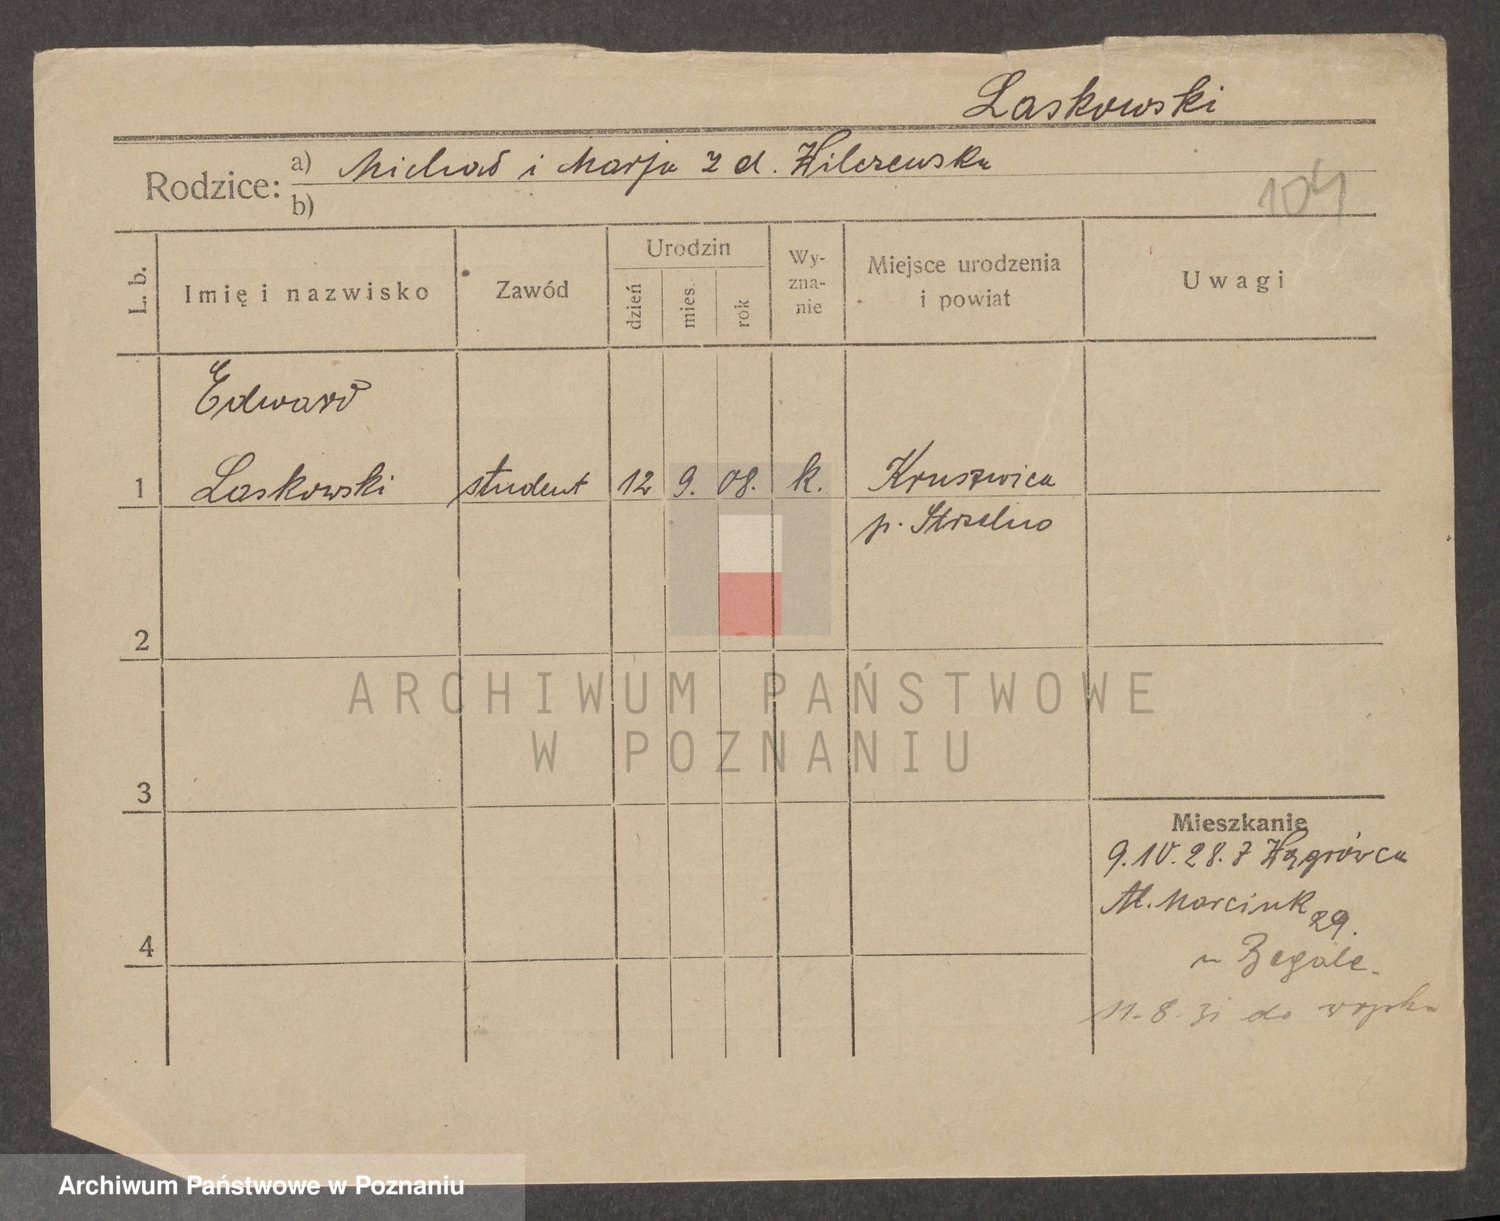 Laskowski
Rodzice: a) Michał i Marja z d. Wilczewska
b)
104
L. b.
Imię i nazwisko
Zawód
Urodzin
dzień
mies.
rok
Wy-
zna-
nie
Miejsce urodzenia
i powiat
Uwagi
Edward
1 Laskowski student 12 9. 08. k. Kruszwica
p. Strzelno
2
3
4
Mieszkanie
9.IV.28. z Wągrówca
Al. Marcink 29.
u Begale.
11.8.31 do wojska
ARCHIWUM PAŃSTWOWE
W POZNANIU
Archiwum Państwowe w Poznaniu